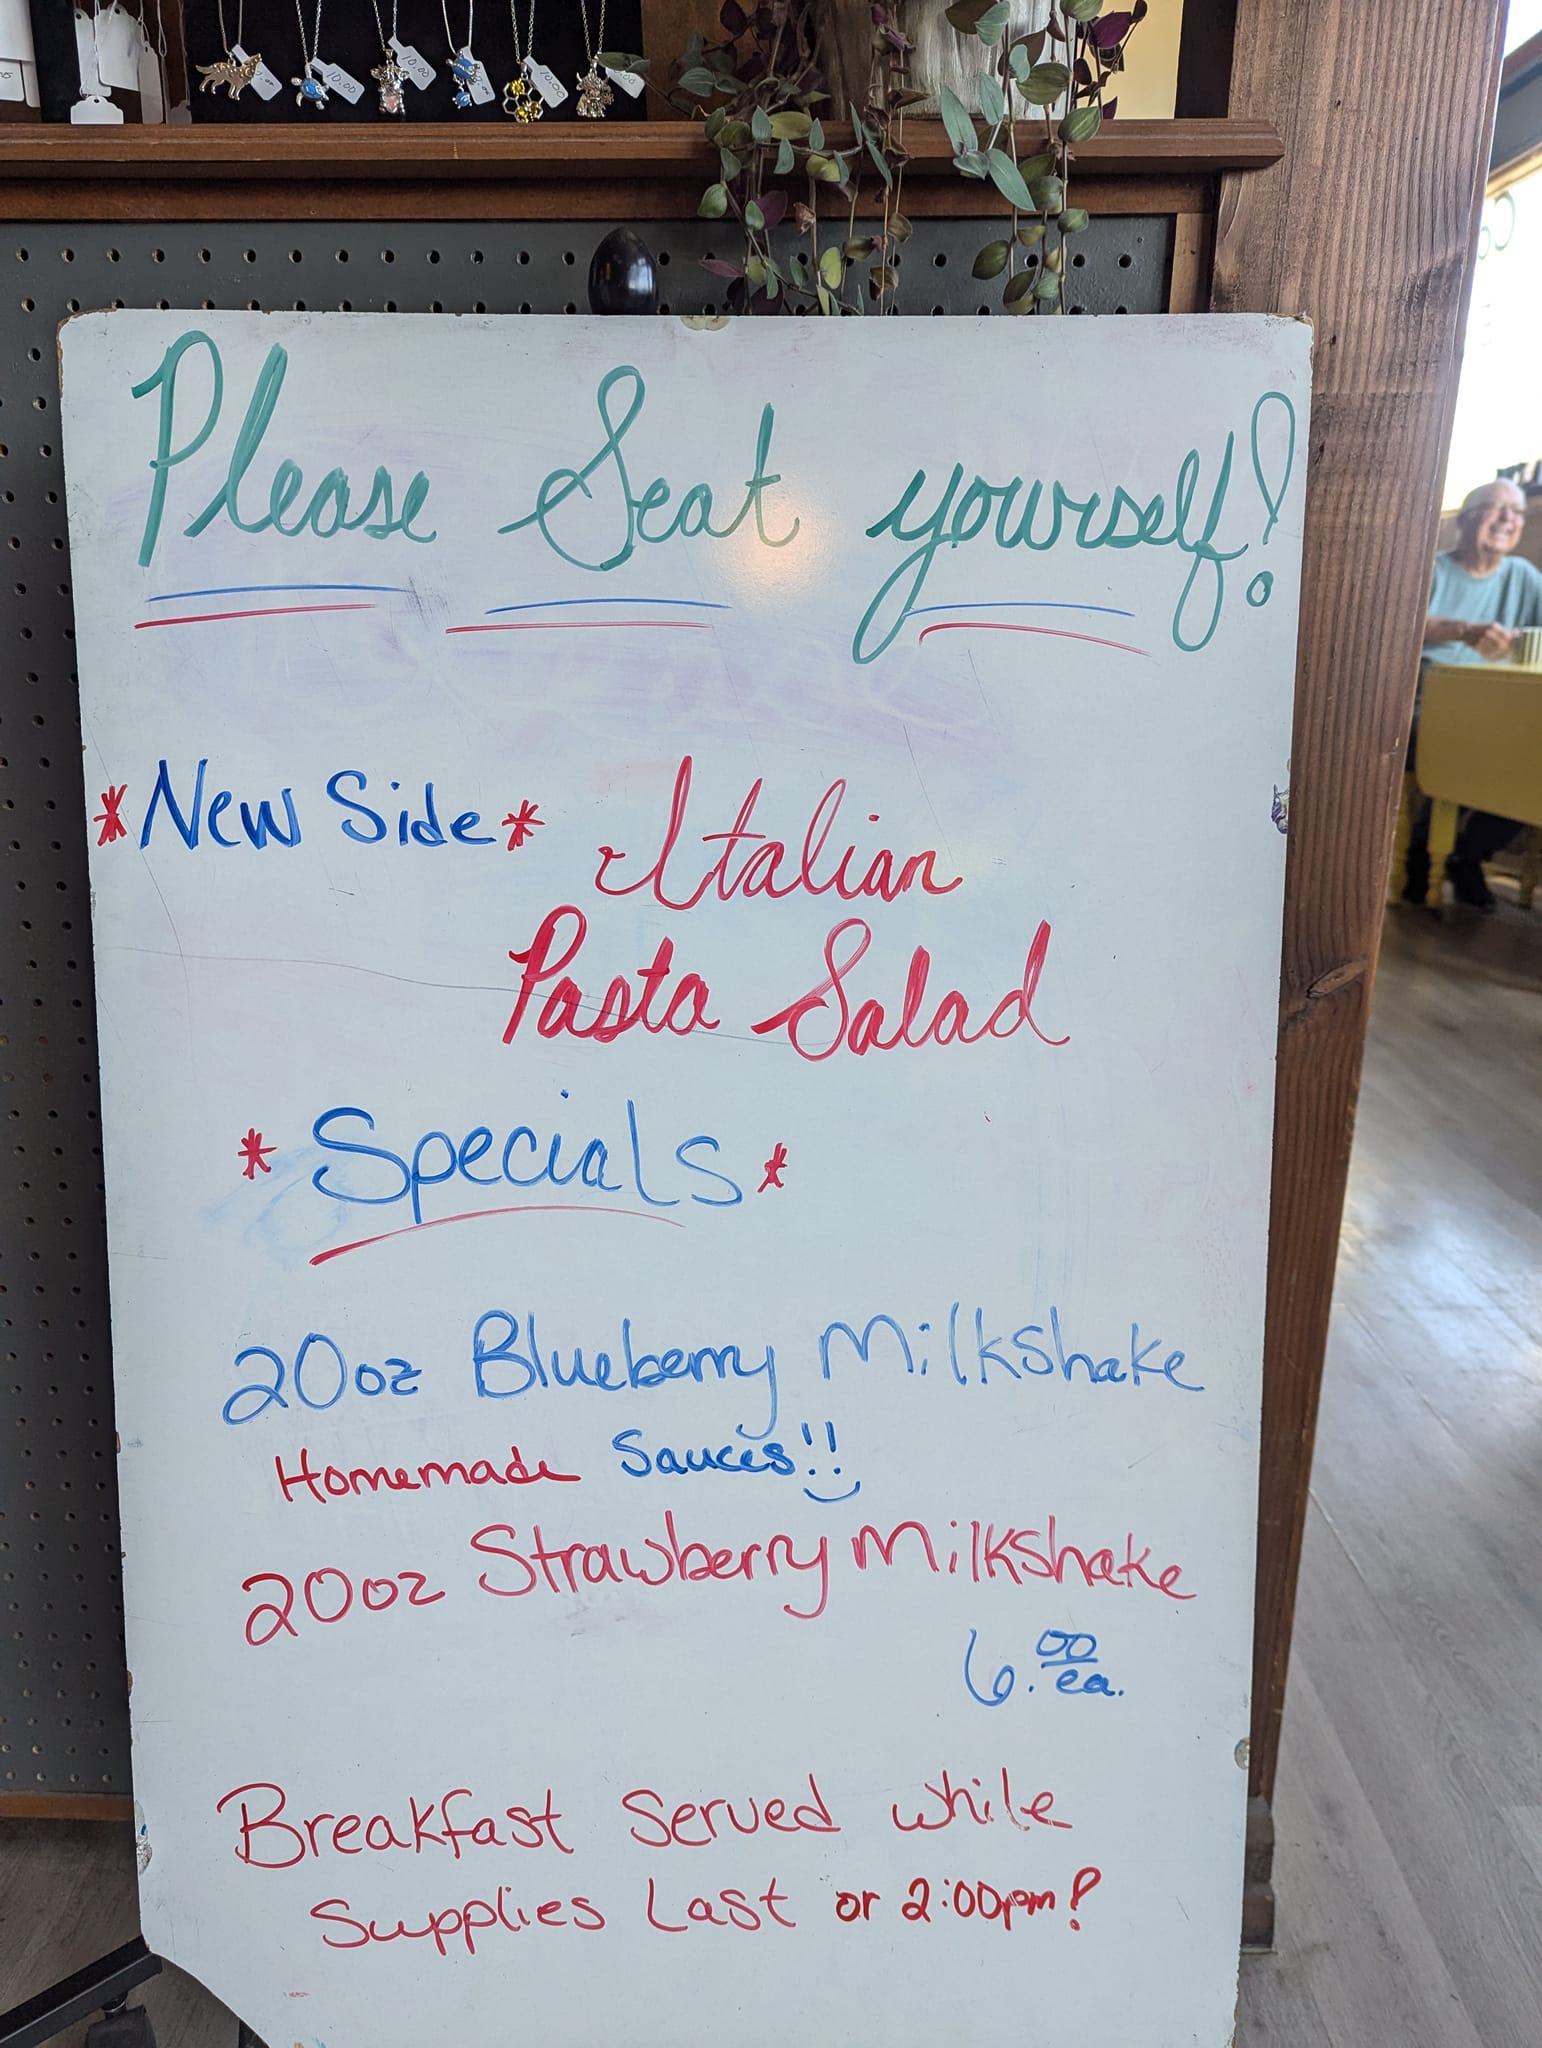 10.00
10.00
10.00
Please Seat yourself!
*New Side* Italian
Pasta Salad
*Specials*
20oz Blueberry Milkshake
Homemade Sauces!!
20oz Strawberry Milkshake
6.00 ea.
Breakfast Served while
Supplies Last or 2:00pm!